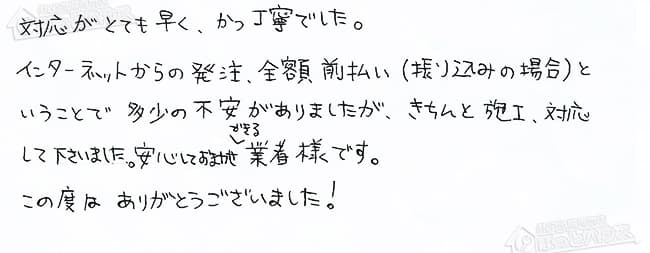 対応がとても早く、かつ丁寧でした。
インターネットからの発注、全額前払い(振り込みの場合)と
いうことで多少の不安がありましたが、きちんと施工、対応
して下さいました。安心しておまかせできる業者様です。
この度はありがとうございました!